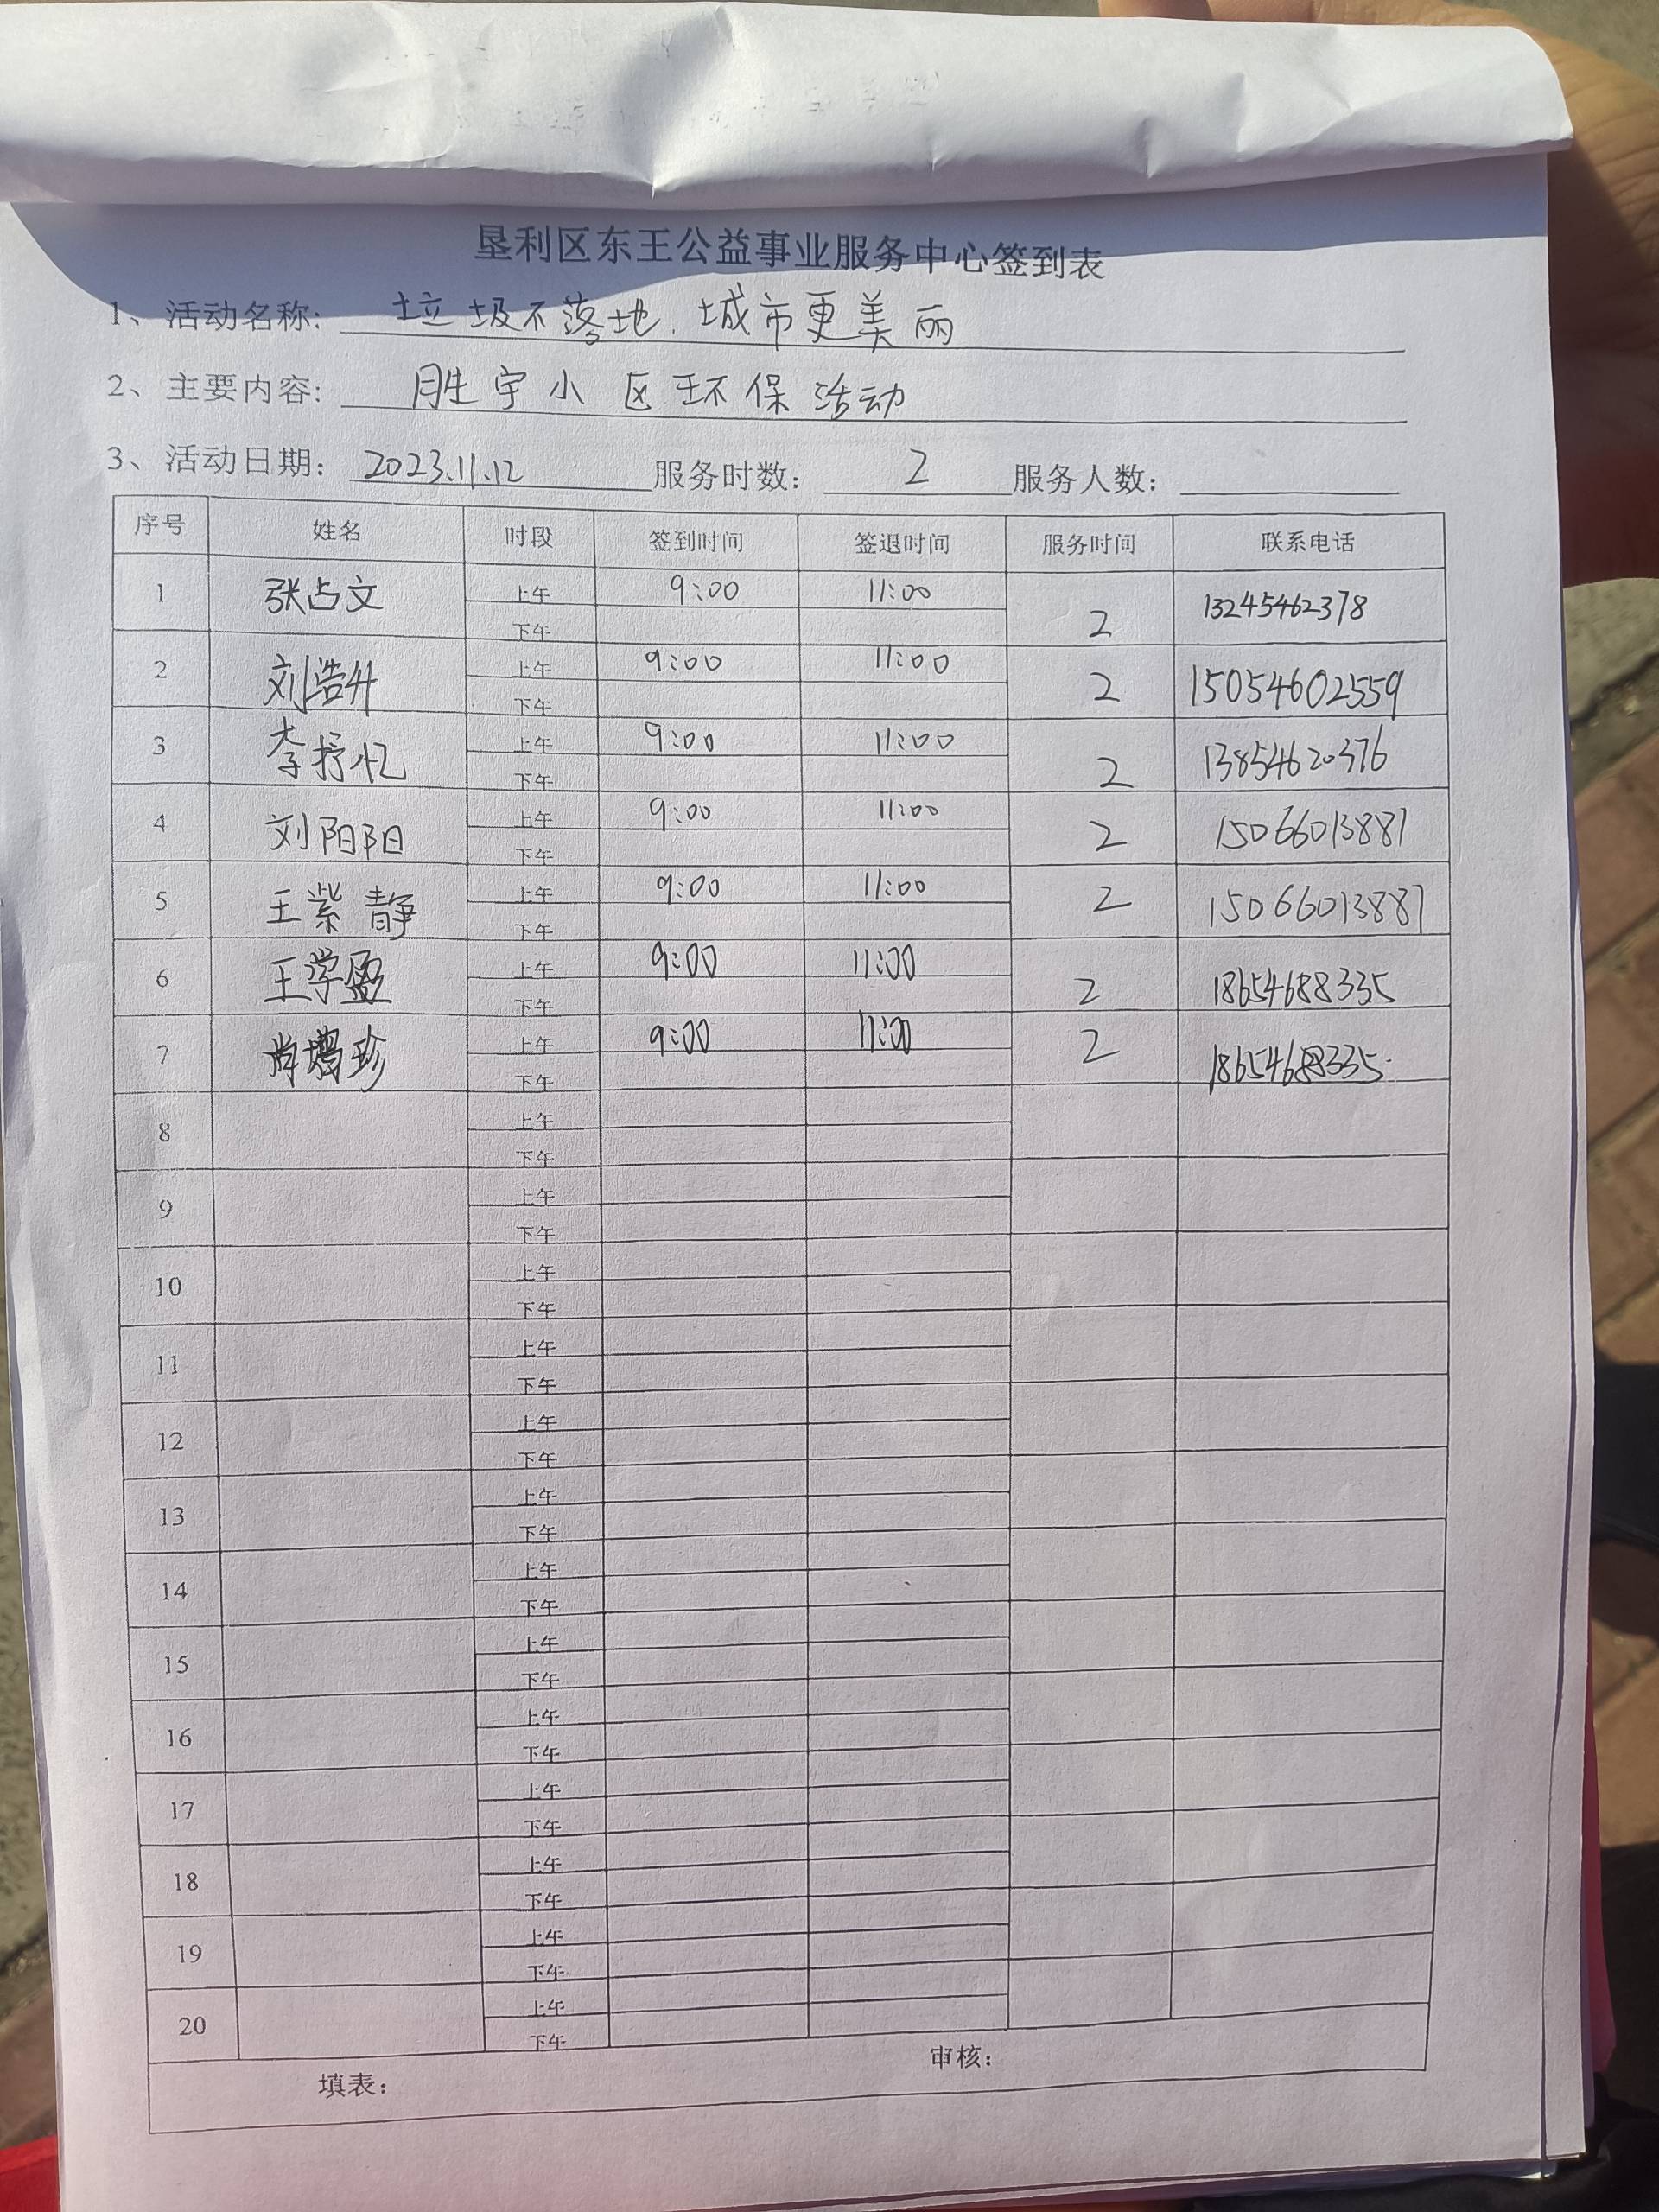 垦利区东王公益事业服务中心签到表
1、活动名称: 垃圾不落地.城市更美丽
2、主要内容: 胜宇小区环保活动
3、活动日期: 2023.11.12 服务时数: 2 服务人数:
序号 姓名 时段 签到时间 签退时间 服务时间 联系电话
1 张占文 上午 9:00 11:00 2 13245462378
下午
2 刘浩升 上午 9:00 11:00 2 15054602559
下午
3 李抒忆 上午 9:00 11:00 2 13854620376
下午
4 刘阳阳 上午 9:00 11:00 2 15066013881
下午
5 王紫静 上午 9:00 11:00 2 15066013881
下午
6 王学盈 上午 9:00 11:00 2 18654688335
下午
7 肖 珍 上午 9:00 11:00 2 18654688335
下午
8 上午
下午
9 上午
下午
10 上午
下午
11 上午
下午
12 上午
下午
13 上午
下午
14 上午
下午
15 上午
下午
16 上午
下午
17 上午
下午
18 上午
下午
19 上午
下午
20 上午
下午
填表: 审核: